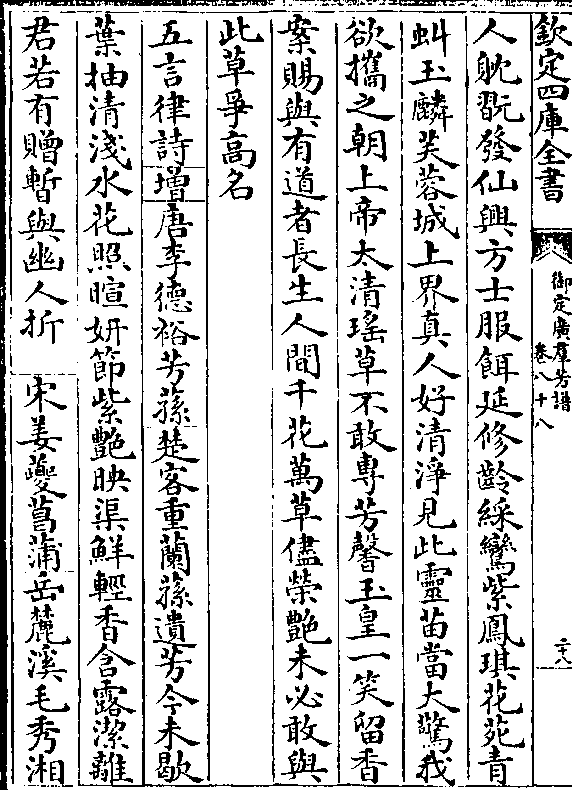 欽定四庫全書
御定廣羣芳譜
卷八十八
二十八
人躭翫發仙興方士服餌延修齡綵鸞紫鳳琪花苑青
虯玉麟芙蓉城上界真人好清淨見此靈苗當大驚我
欲攜之朝上帝太清瑤草不敢專芳馨玉皇一笑留香
案賜與有道者長生人間千花萬草儘榮艷未必敢與
此草爭高名
五言律詩增唐李德裕芳蓀楚客重蘭蓀遺芳今未歇
葉抽清淺水花照暄妍節紫艷映渠鮮輕香含露潔離
君若有贈暫與幽人折 宋姜夔菖蒲岳麓溪毛秀湘